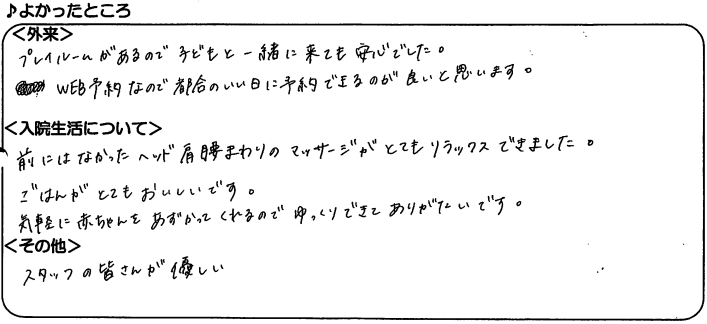 ♪よかったところ
<外来>
プレイルームがあるので子どもと一緒に来ても安心でした。
WEB予約なので都合のいい日に予約できるのが良いと思います。
<入院生活について>
前にはなかったヘッド肩腰まわりのマッサージがとてもリラックスできました。
ごはんがとてもおいしいです。
気軽に赤ちゃんをあずかってくれるのでゆっくりできてありがたいです。
<その他>
スタッフの皆さんが優しい